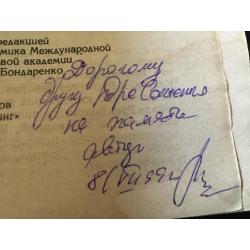 редакцией
мика Международной
вой академии
Бондаренко
ов
инг»
Дорогому
другу
на память
автор